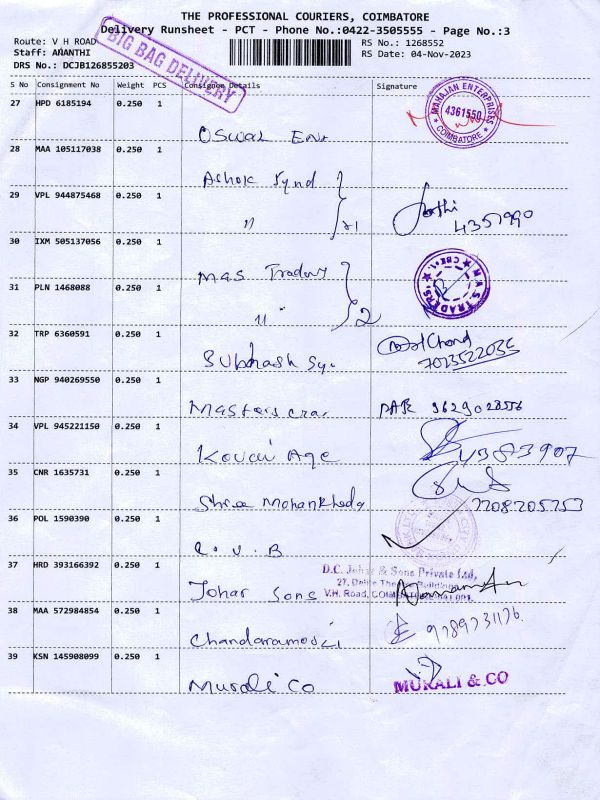 THE PROFESSIONAL COURIERS, COIMBATORE
Delivery Runsheet - PCT - Phone No.:0422-3505555 - Page No.:3
Route: V H ROAD
RS No.: 1268552
Staff: ANANTHI
RS Date: 04-Nov-2023
DRS No.: DCJB126855203
BIG BAG DELIVERY
S No Consignment No Weight PCS Consignee Details Signature
27 HPD 6185194 0.250 1
MAHAJAN ENTERPRISES
4361550
COIMBATORE
Oswal Ent
28 MAA 105117038 0.250 1
Ashok Synd
29 VPL 944875468 0.250 1
"
30 IXM 505137056 0.250 1
Mas Trading
M.A.S. TRADERS
CBE-1
31 PLN 1468088 0.250 1
" 2
32 TRP 6360591 0.250 1
Subhash Sy.
33 NGP 940269550 0.250 1
34 VPL 945221150 0.250 1
Kovai Age
35 CNR 1635731 0.250 1
7208205253
36 POL 1590390 0.250 1
C.U.B
37 HRD 393166392 0.250 1
D.C. Johar & Sons Private Ltd,
V.H. Road,
Johar Sons
38 MAA 572984854 0.250 1
39 KSN 145908099 0.250 1
Murali Co
MURALI & CO